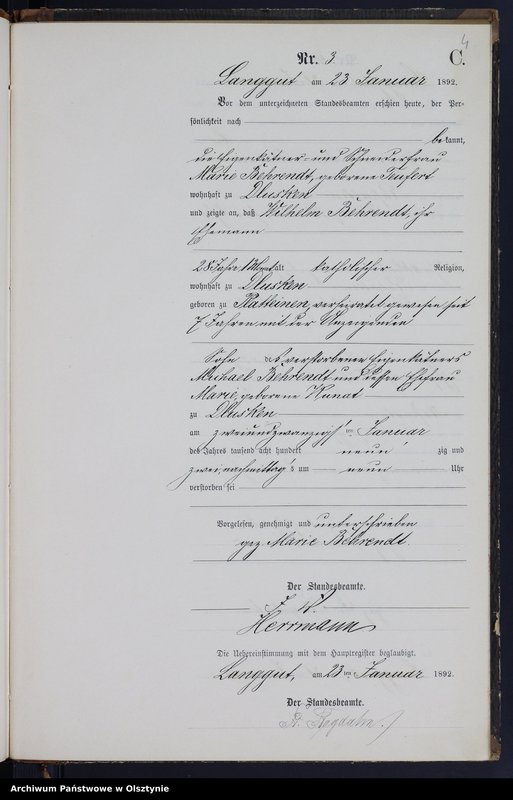 4
Nr. 3. C.
Langgut am 23 Januar 1892.
Vor dem unterzeichneten Standesbeamten erschien heute, der Per-
sönlichkeit nach
be kannt,
die Eigenkätner- und Schneiderfrau
Marie Behrendt, geborene Teufert
wohnhaft zu Dlusken
und zeigte an, daß Wilhelm Behrendt, ihr
Ehemann
28 Jahre alt katholischer Religion,
wohnhaft zu Dlusken
geboren zu verheiratet gewesen seit
7 Jahren mit der Anzeigenden
Sohn des verstorbenen Eigenkätners
Michael Behrendt und dessen Ehefrau
Marie, geborene
zu Dlusken
am zweiundzwanzigsten Januar
des Jahres tausend acht hundert neun zig und
zwei, nachmittags um neun Uhr
verstorben sei
Vorgelesen, genehmigt und unterschrieben
gez. Marie Behrendt.
Der Standesbeamte.
J. V.
Herrmann
Die Uebereinstimmung mit dem Hauptregister beglaubigt.
Langgut, am 23 ten Januar 1892.
Der Standesbeamte.
Archiwum Państwowe w Olsztynie